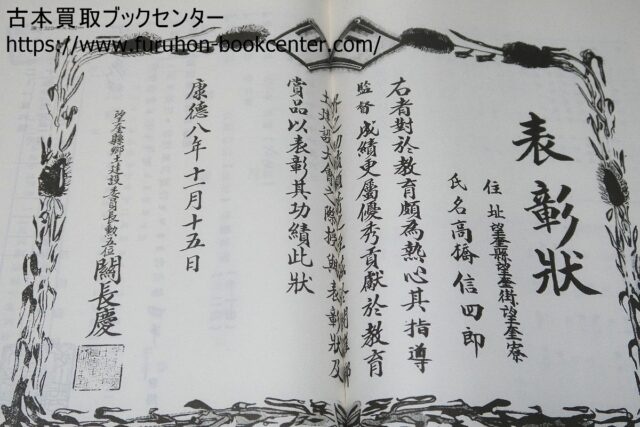 古本買取ブックセンター
https://www.furuhon-bookcenter.com/
表彰狀
住址望奎縣望奎街望奎寮
氏名高橋信四郎
右者對於教育頗為熱心其指導
監督成績更屬優秀貢獻於教育
表彰狀及
賞品以表彰其功績此狀
康德八年十一月十五日
望奎縣鄉土建設委員長勳五位
關長慶